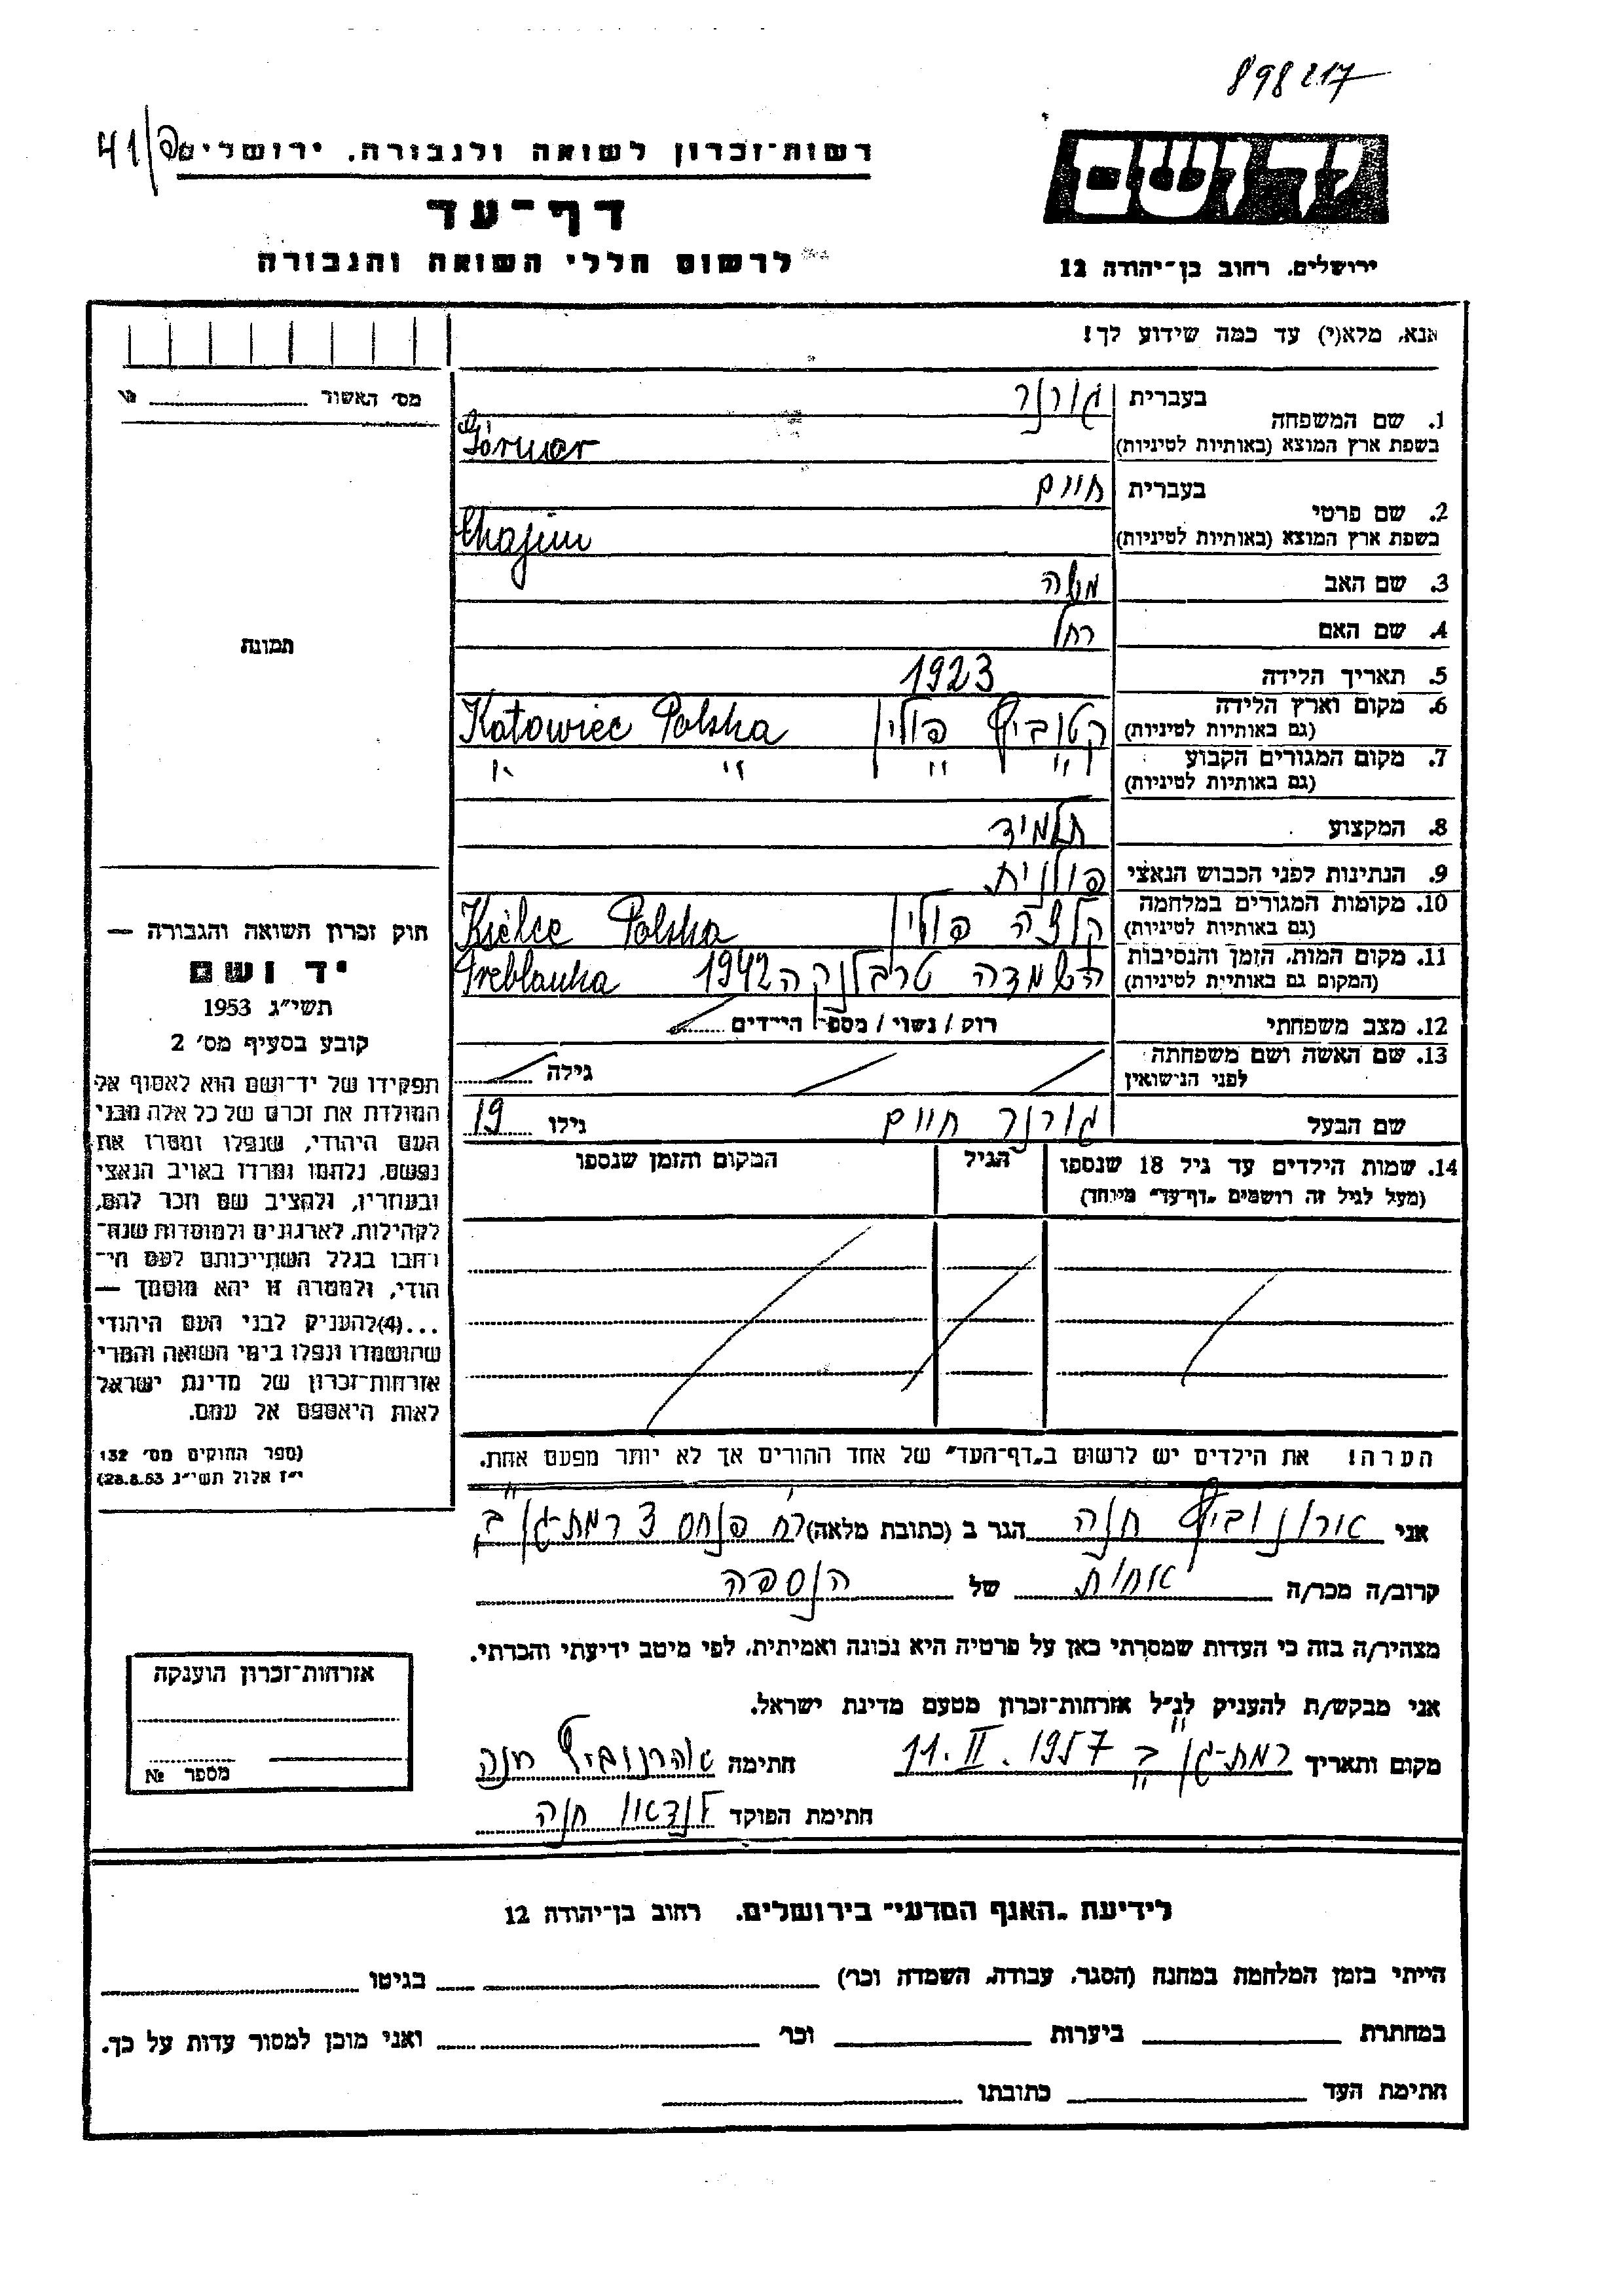 898217
41/פ
רשות־זכרון לשואה ולגבורה. ירושלים
יד ושם
דף־עד
לרשום חללי השואה והגבורה
ירושלים. רחוב בן־יהודה 12
אנא, מלא(י) עד כמה שידוע לך!
מס׳ האשור
1. שם המשפחה בעברית גורנר
בשפת ארץ המוצא (באותיות לטיניות) Górner
2. שם פרטי בעברית חיים
בשפת ארץ המוצא (באותיות לטיניות) Chajim
3. שם האב משה
תמונה
4. שם האם רחל
5. תאריך הלידה 1923
6. מקום וארץ הלידה קטוביץ פולין Katowiec Polska
(גם באותיות לטיניות)
7. מקום המגורים הקבוע " " " "
(גם באותיות לטיניות)
8. המקצוע תלמיד
9. הנתינות לפני הכבוש הנאצי פולנית
10. מקומות המגורים במלחמה קלצה פולין Kielce Polska
(גם באותיות לטיניות)
11. מקום המות, הזמן והנסיבות השמדה טרבלנקה 1942 Treblanka
(המקום גם באותיות לטיניות)
12. מצב משפחתי רוק / נשוי / מספר הילדים
13. שם האשה ושם משפחתה גילה
לפני הנישואין
שם הבעל גורנר חיים גילו 19
14. שמות הילדים עד גיל 18 שנספו הגיל המקום והזמן שנספו
(מעל לגיל זה רושמים „דף־עד" מיוחד)
הערה! את הילדים יש לרשום ב„דף־העד" של אחד ההורים אך לא יותר מפעם אחת.
חוק זכרון השואה והגבורה —
יד ושם
תשי״ג 1953
קובע בסעיף מס׳ 2
תפקידו של יד־ושם הוא לאסוף אל
המולדת את זכרם של כל אלה מבני
העם היהודי, שנפלו ומסרו את
נפשם, נלחמו ומרדו באויב הנאצי
ובעוזריו, ולהציב שם וזכר להם,
לקהילות, לארגונים ולמוסדות שנח־
רבו בגלל השתייכותם לעם הי־
הודי, ולמטרה זו יהא מוסמך —
...(4)להעניק לבני העם היהודי
שהושמדו ונפלו בימי השואה והמרי
אזרחות־זכרון של מדינת ישראל
לאות היאספם אל עמם.
(ספר החוקים מס׳ 132
י״ז אלול תשי״ג 28.8.53)
אני ארונוביץ חנה הגר ב (כתובת מלאה) רח׳ פנחס 3 רמת-גן ב"
קרוב/ה מכר/ה אחות של הנספה
מצהיר/ה בזה כי העדות שמסרתי כאן על פרטיה היא נכונה ואמיתית, לפי מיטב ידיעתי והכרתי.
אני מבקש/ת להעניק לנ״ל אזרחות־זכרון מטעם מדינת ישראל.
מקום ותאריך רמת-גן ב" 11. II. 1957 חתימה אהרנוביץ חנה
חתימת הפוקד לנדאו חנה
אזרחות־זכרון הוענקה
מספר №
לידיעת „האגף המדעי" בירושלים. רחוב בן־יהודה 12
הייתי בזמן המלחמה במחנה (הסגר, עבודה, השמדה וכר׳) בגיטו
במחתרת ביערות וכר׳ ואני מוכן למסור עדות על כך.
חתימת העד כתובתו